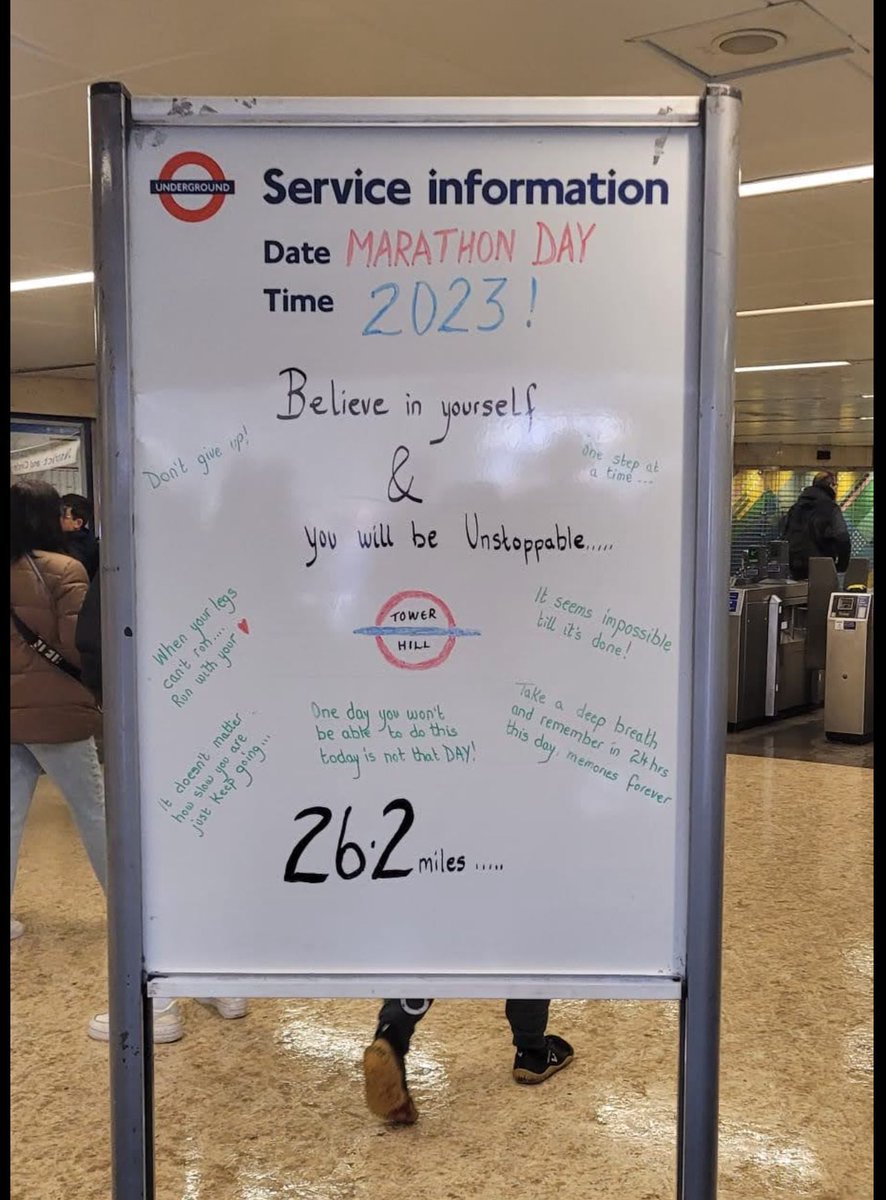 UNDERGROUND
Service information
Date MARATHON DAY
Time 2023!
Believe in yourself
&
you will be Unstoppable.....
Don't give up!
One step at
a time...
TOWER
HILL
When your legs
can't run....
Run with your ♥
It seems impossible
till it's done!
It doesn't matter...
how slow you are
just keep going...
One day you won't
be able to do this
today is not that DAY!
Take a deep breath
and remember in 24hrs
this day, memories forever
26.2 miles.....